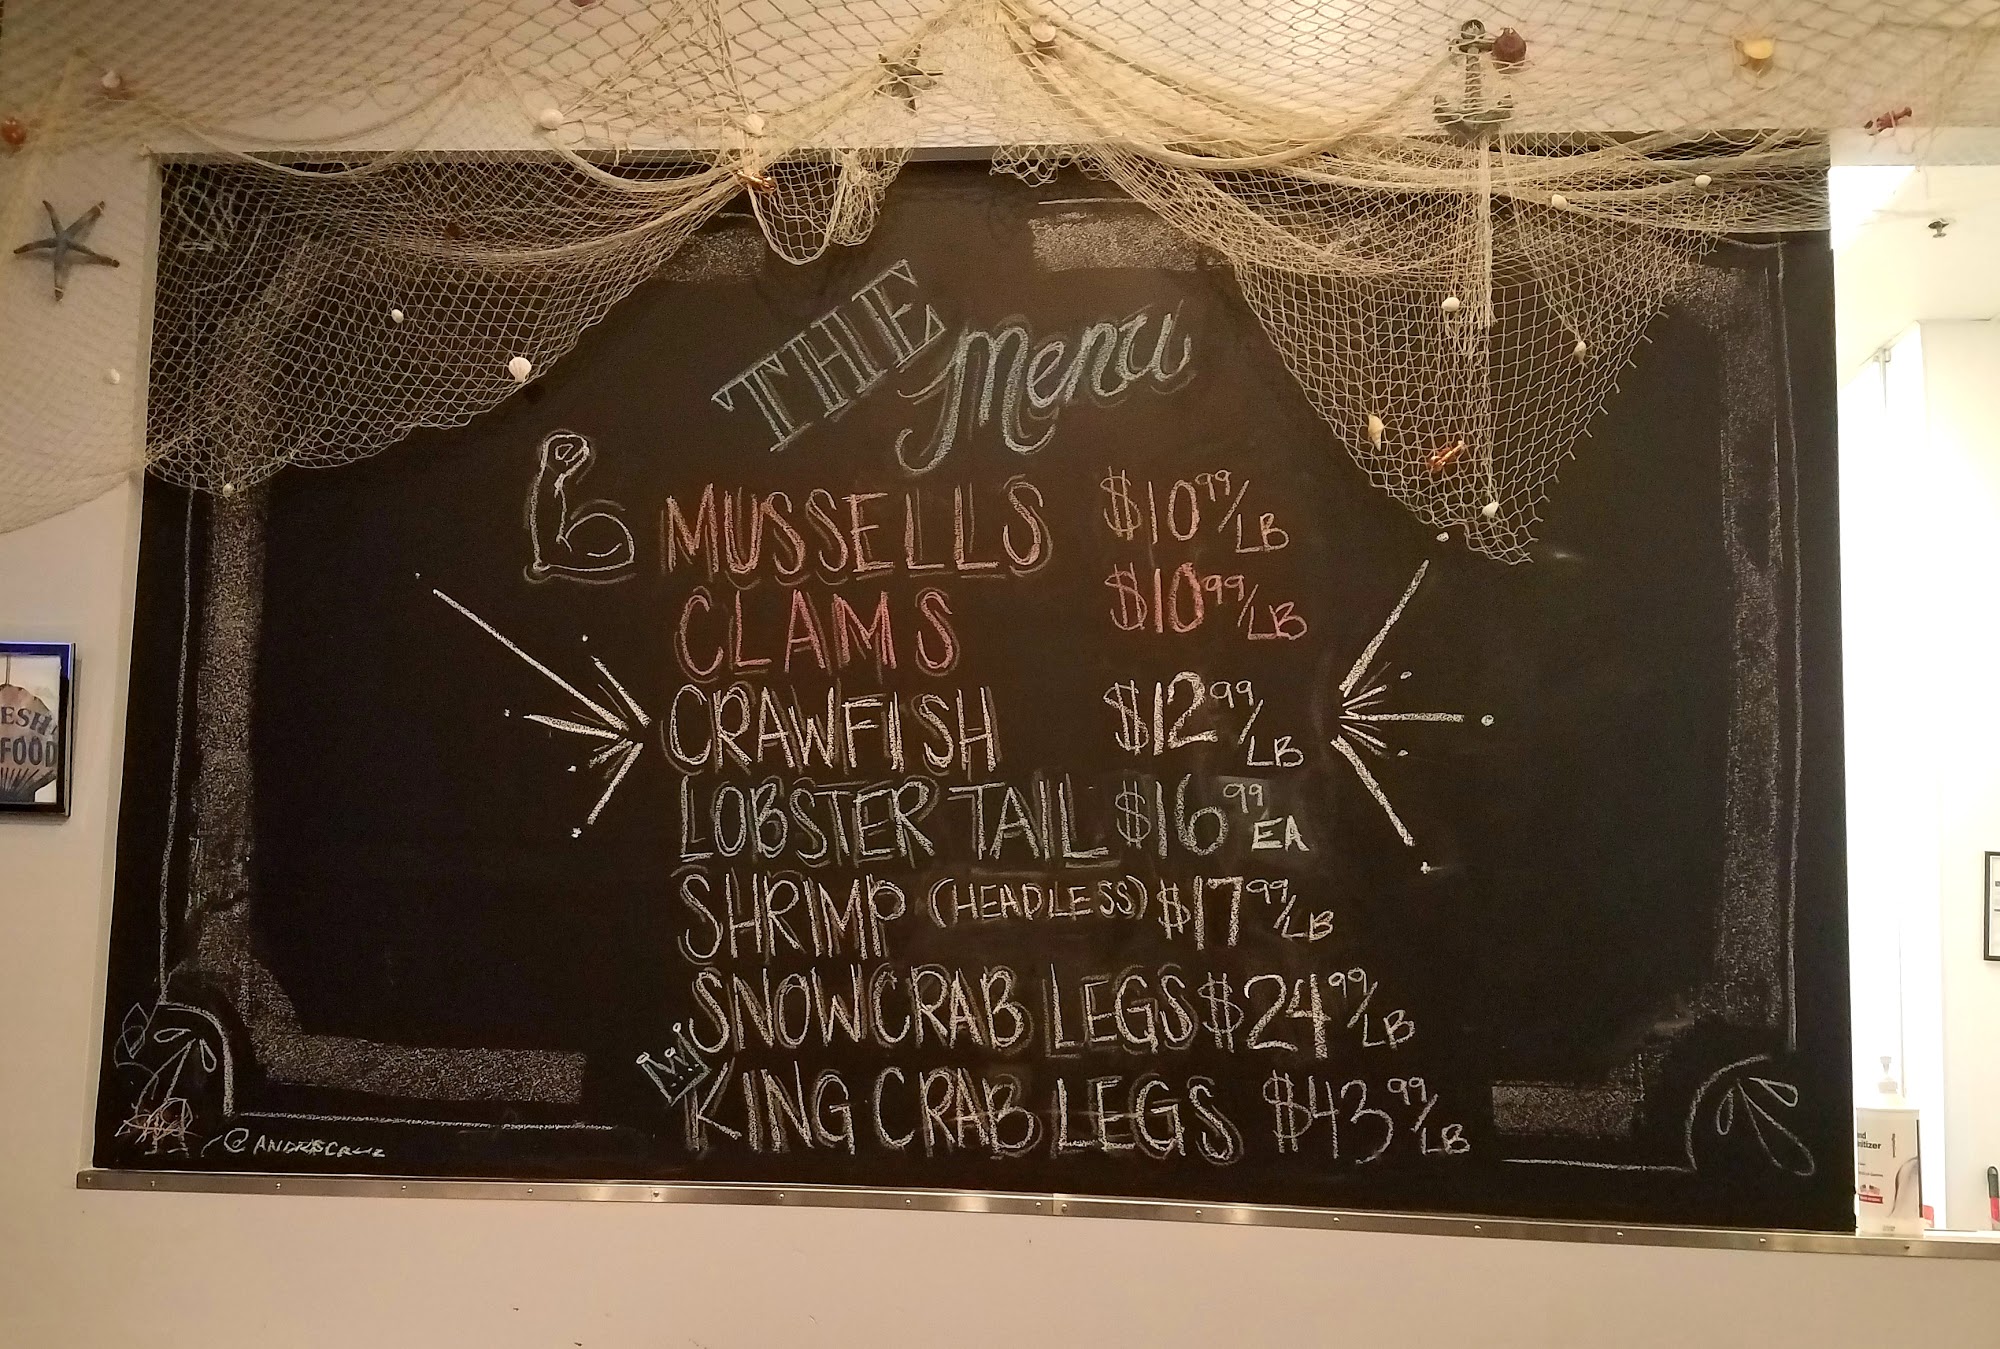 THE Menu
MUSSELLS $10.99/LB
CLAMS $10.99/LB
CRAWFISH $12.99/LB
LOBSTER TAIL $16.99 EA
SHRIMP (HEADLESS) $17.99/LB
SNOWCRAB LEGS $24.99/LB
KING CRAB LEGS $43.99/LB
ESH
FOOD